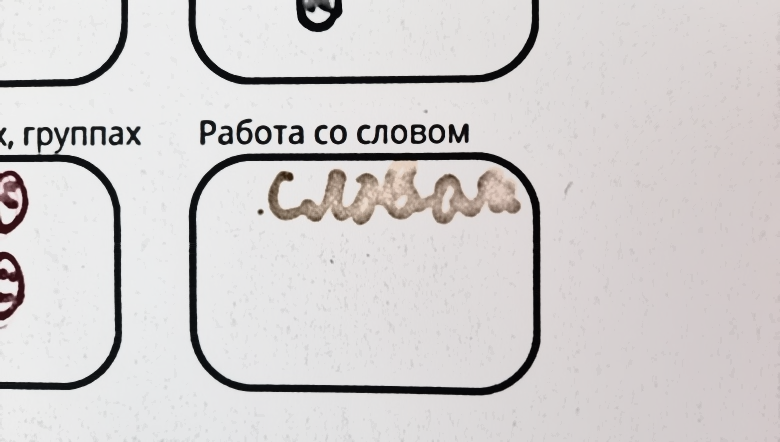 х, группах Работа со словом
словам